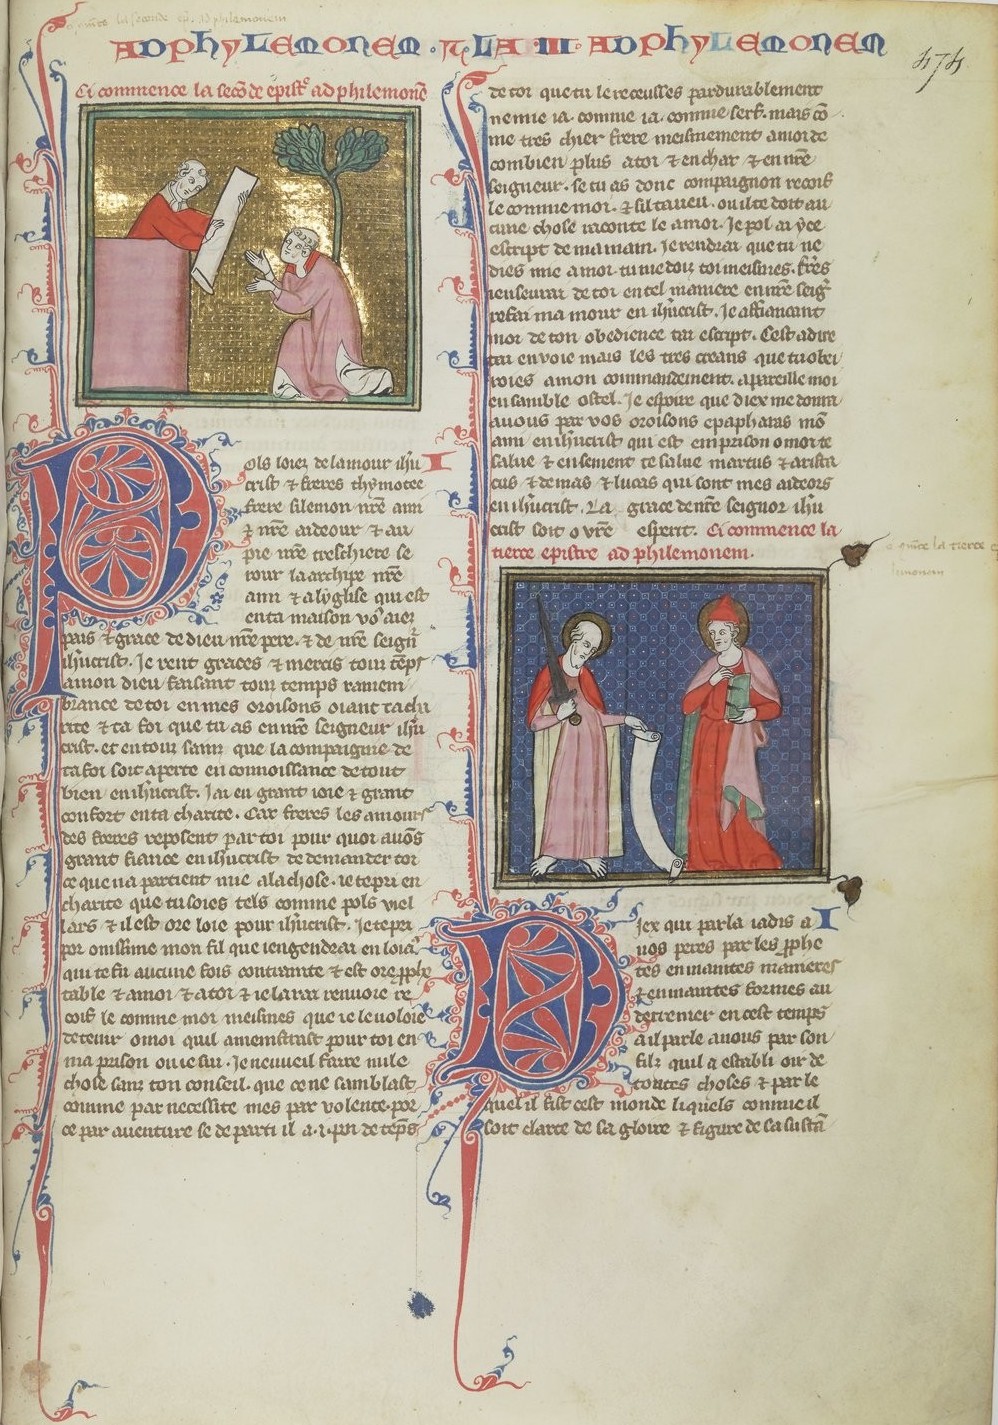 AD PHYLEMONEM · ET LA · III · AD PHYLEMONEM
474
Ci commence la secōde epistr̄ ad philemonē
Pols loiez de lamour ihū
crist ⁊ freres thymotee
frere filemon nr̄e ami
⁊ nr̄e aideour ⁊ au
pie nr̄e treschiere se
rour la archipe nr̄e
ami ⁊ a lyglise qui est
en ta maison vo᷒ aiez
pais ⁊ grace de dieu nr̄e pere ⁊ de nr̄e seign̄
ihūcrist. Je rent graces ⁊ mercis touz tēps
a mon dieu faisant touz temps ramem
brance de toi en mes oroisons oiant ta cha
rite ⁊ ta foi que tu as en nr̄e seigneur ihū
crist. et en touz sainz que la compaignie de
ta foi soit aperte en connoissance de tout
bien en ihūcrist. Jai eu grant ioie ⁊ grant
confort en ta charite. Car freres les amours
des freres reposent par toi pour quoi auōs
grant fiance en ihūcrist de demander toi
ce que na partient mie a la chose. ie te pri en
charite que tu soies tels comme pols viel
lars ⁊ il est ore loie pour ihūcrist. Je te pri
por onissime mon fil que iengendrai en loiā
qui te fu aucune fois contraire ⁊ est ore pphi
table ⁊ a moi ⁊ a toi ⁊ ie la rai renuoie re
coif le comme moi meismes que ie le voloie
detenir o moi quil amenistrast pour toi en
ma prison ou ie sui. Je ne vueil faire nule
chose sanz ton conseil. que ce ne samblast
comme par necessite mes par volente. por
ce par auenture se departi il a .i. pn̄ de tēps
de toi que tu le receusses pardurablement
nemie ia. comme ia. comme serf. mais cō
me tres chier frere meismement a moi de
combien plus a toi ⁊ en char ⁊ en nr̄e
seigneur. se tu as donc compaignon recoif
le comme moi. ⁊ sil ta neu. ou il te doit au
cune chose raconte le a moi. Je pol ai y̅ce
escript de ma main. Je rendrai que tu ne
dies mie a moi. tu me doiz toi meismes. frēs
ie useurai de toi en tel maniere en nr̄e seigr̄
refai ma mour en ihūcrist. Je affiancant
moi de ton obedience tai escript. Cest a dire
tai enuoie mais les tres creans que tu obei
roies a mon commandement. apareille moi
ensamble ostel. Je espoire que diex me donra
a uous par vos oroisons epaphatas mō
ami en ihūcrist qui est em prison o moi te
salue ⁊ ensement te salue martus ⁊ arista
cus ⁊ demas ⁊ lucas qui sont mes aideors
en ihūcrist. La grace de nr̄e seignor ihū
crist soit o vr̄e esperit. Ci commence la
tierce epistre ad philemonem.
I
Diex qui parla iadis a
I
uos peres par les pphe
tes en maintes manieres
⁊ en maintes formes au
derrenier en cest temps
a il parle a uous par son
filz quil a establi oir de
toutes choses ⁊ par le
quel il fist cest monde li quels comme il
soit clarte de sa gloire ⁊ figure de sa sustā